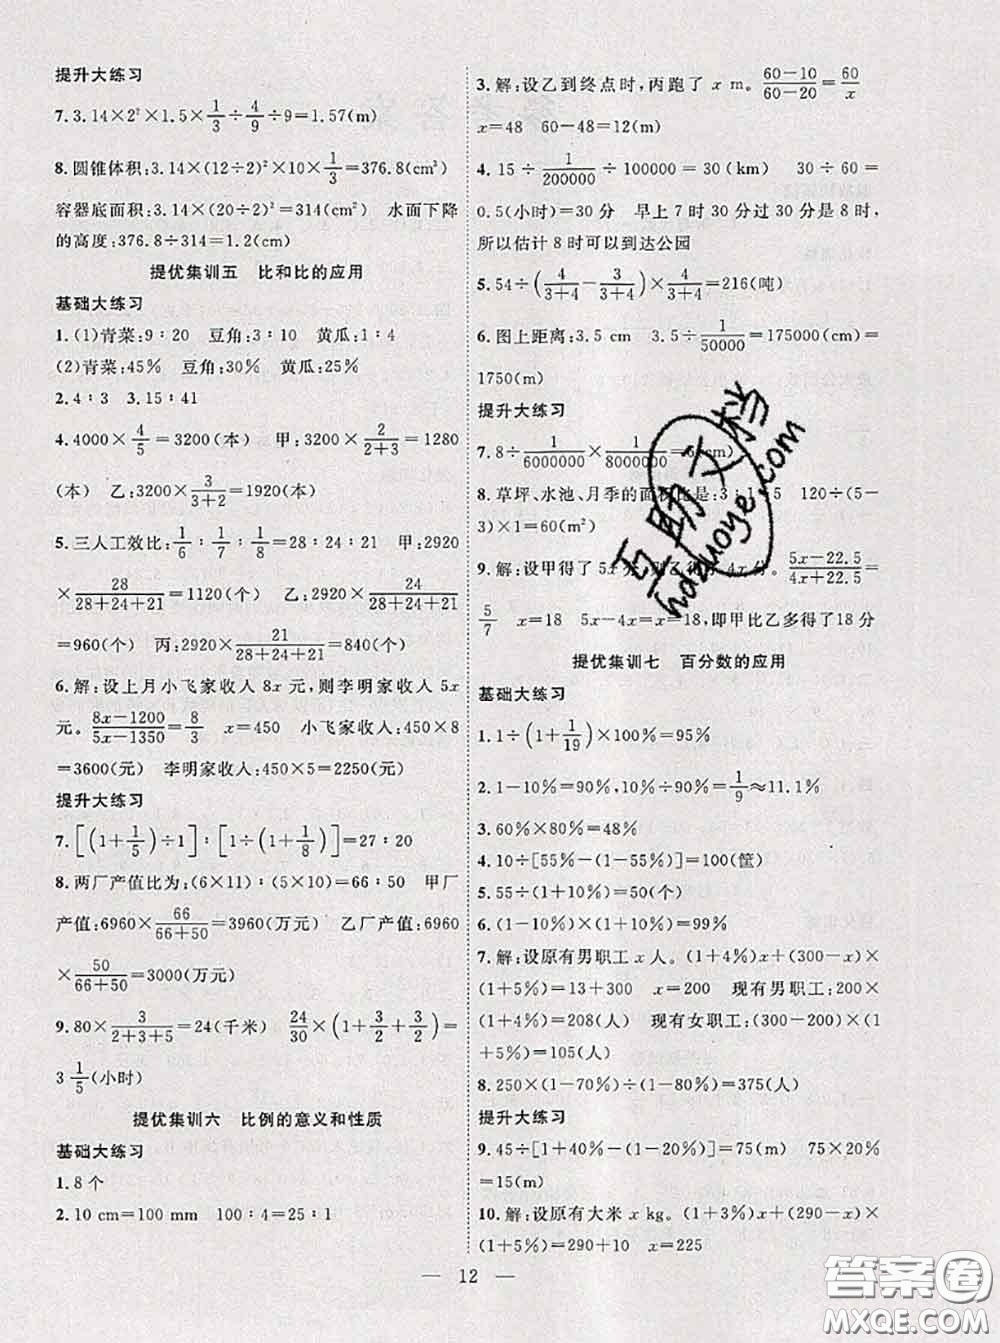 提升大练习
7.3.14×2²×1.5×1/3÷4/9÷9=1.57(m)
8.圆锥体积:3.14×(12÷2)²×10×1/3=376.8(cm³)
容器底面积:3.14×(20÷2)²=314(cm²) 水面下降
的高度:376.8÷314=1.2(cm)
提优集训五 比和比的应用
基础大练习
1.(1)青菜:9∶20 豆角:3∶10 黄瓜:1∶4
(2)青菜:45% 豆角:30% 黄瓜:25%
2.4∶3 3.15∶41
4.4000×4/5=3200(本) 甲:3200×2/(2+3)=1280
(本) 乙:3200×3/(3+2)=1920(本)
5.三人工效比:1/6∶1/7∶1/8=28∶24∶21 甲:2920
×28/(28+24+21)=1120(个) 乙:2920×24/(28+24+21)
=960(个) 丙:2920×21/(28+24+21)=840(个)
6.解:设上月小飞家收入8x元,则李明家收入5x
元。(8x-1200)/(5x-1350)=8/3 x=450 小飞家收入:450×8
=3600(元) 李明家收入:450×5=2250(元)
提升大练习
7.[(1+1/5)÷1]∶[1÷(1+1/8)]=27∶20
8.两厂产值比为:(6×11)∶(5×10)=66∶50 甲厂
产值:6960×66/(66+50)=3960(万元) 乙厂产值:6960
×50/(66+50)=3000(万元)
9.80×3/(2+3+5)=24(千米) 24/30×(1+3/2+3/2)=
3 1/5(小时)
提优集训六 比例的意义和性质
基础大练习
1.8个
2.10 cm=100 mm 100∶4=25∶1
3.解:设乙到终点时,丙跑了x m。(60-10)/(60-20)=60/x
x=48 60-48=12(m)
4.15÷1/200000÷100000=30(km) 30÷60=
0.5(小时)=30分 早上7时30分过30分是8时,
所以估计8时可以到达公园
5.54÷(4/(3+4)-3/(3+4))×4/(3+4)=216(吨)
6.图上距离:3.5 cm 3.5÷1/50000=175000(cm)=
1750(m)
提升大练习
7.8÷1/6000000×1/8000000=6(cm)
8.草坪、水池、月季的面积比是:3∶1∶5 120÷(5-
3)×1=60(m²)
9.解:设甲得了5x分,则乙得了4x分。(5x-22.5)/(4x+22.5)=
5/7 x=18 5x-4x=x=18,即甲比乙多得了18分
提优集训七 百分数的应用
基础大练习
1.1÷(1+1/19)×100%=95%
2.1-10%=90% 10%÷90%=1/9≈11.1%
3.60%×80%=48%
4.10÷[55%-(1-55%)]=100(筐)
5.55÷(1+10%)=50(个)
6.(1-10%)×(1+10%)=99%
7.解:设原有男职工x人。(1+4%)x+(300-x)×
(1+5%)=10+3+300 x=200 现有男职工:200×
(1+4%)=208(人) 现有女职工:(300-200)×(1
+5%)=105(人)
8.250×(1-70%)÷(1-80%)=375(人)
提升大练习
9.45÷[1+40%-(1-20%)]=75(m) 75×20%
=15(m)
10.解:设原有大米x kg。(1+3%)x+(290-x)
×(1+5%)=290+10 x=225
12
互助文档
hdzuoye.com
答案圈
MXQE.COM